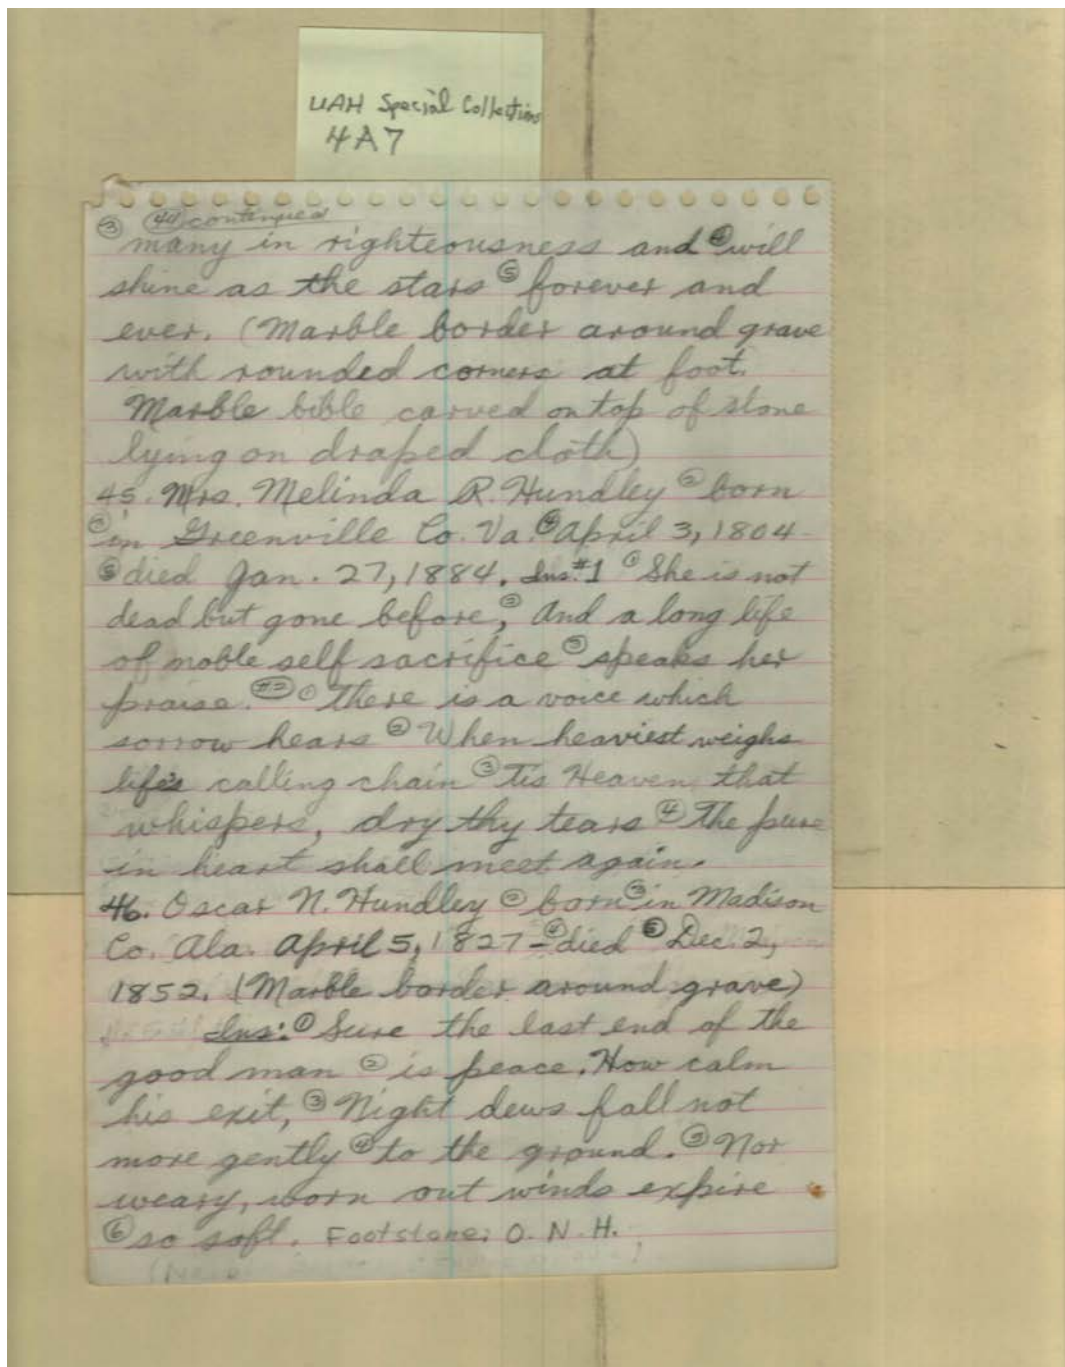 UAH Special Collections
4A7
③ ㊹ continued
many in righteousness and ④ will
shine as the stars ⑤ forever and
ever. (Marble border around grave
with rounded corners at foot.
Marble bible carved on top of stone
lying on draped cloth)
45. Mrs. Melinda R. Hundley ② born
③ in Greenville Co. Va. ④ April 3, 1804-
⑤ died Jan. 27, 1884. Ins. #1 ① She is not
dead but gone before, ② And a long life
of noble self sacrifice ③ speaks her
praise. #2 ① There is a voice which
sorrow hears ② When heaviest weighs
life's calling chain ③ Tis Heaven that
whispers, dry thy tears ④ The pure
in heart shall meet again.
46. Oscar N. Hundley ② born ③ in Madison
Co. Ala. April 5, 1827- ④ died ⑤ Dec. 2,
1852. (Marble border around grave)
Ins: ① Sure the last end of the
good man ② is peace. How calm
his exit, ③ Night dews fall not
more gently ④ to the ground. ⑤ Nor
weary, worn out winds expire
⑥ so soft. Footstone: O. N. H.